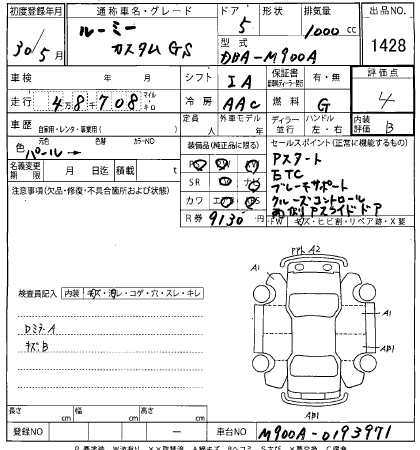 初度登録年月 通称車名・グレード ドア 形状 排気量 出品NO.
30/5月 ルーミー カスタムGS 5 1000 cc 1428
型式 DBA-M900A
車検 年 月 シフト IA 保証書 有・無 評価点
走行 4万8千708 マイル キロ 冷房 AAC 燃料 G 4
車歴 自家用・レンタ・事業用( ) 定員 人 外車モデル 年 ディーラー 並行 ハンドル 左・右 内装評価 B
色 元色 パール→ 色替 カラーNO 装備品(純正品に限る) セールスポイント(正常に機能するもの)
名義変更期限 月 日迄 積載 t
Pスタート
ETC
ブレーキサポート
クルーズコントロール
両側Pスライドドア
注意事項(欠品・修復・不具合箇所および状態)
SR ナビ
カワ エアB ABS
R券 9130 円 FW キズ・ヒビ割・リペア跡・X要
検査員記入 内装 キズ・汚レ・コゲ・穴・スレ・キレ
ロミラーA
キズB
A2
A1
A1
AB1
AB1
長さ cm 幅 cm 高さ cm
登録NO — 車台NO M900A-0193971